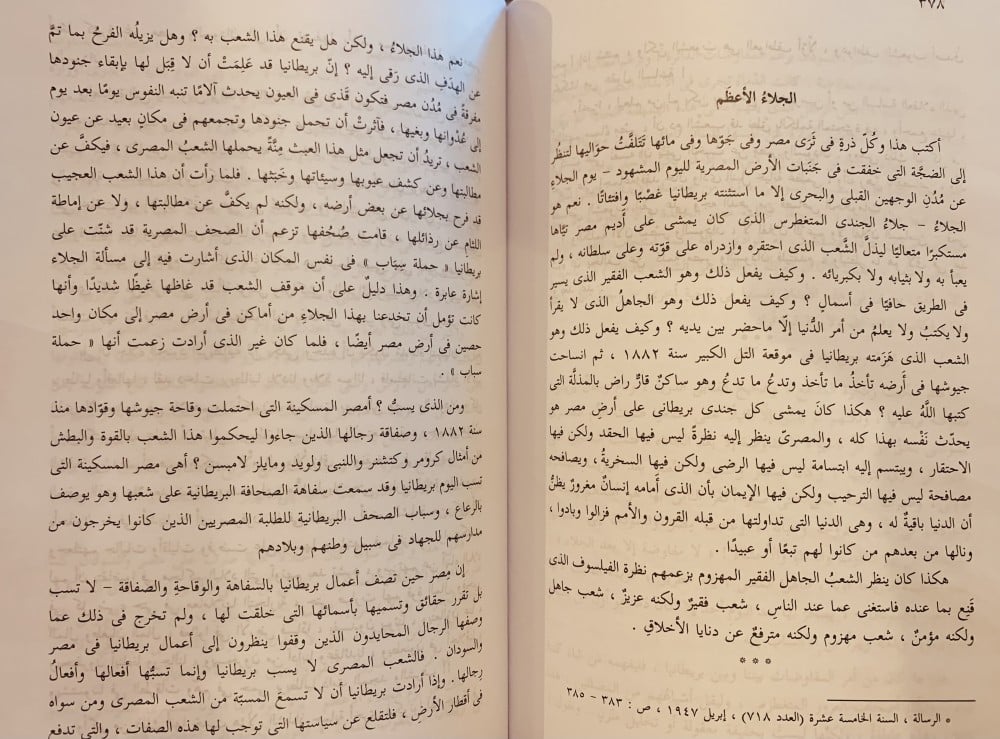 ٣٧٨
الجلاءُ الأعظَم
أكتب هذا وكُلّ ذرةٍ فى ثَرَى مصر وفى جَوّها وفى مائها تَتَلفَّتُ حوَاليها لتنظُر
إلى الضجَّة التى خفقت فى جَنَبات الأرض المصرية لليوم المشهود – يوم الجلاءِ
عن مُدُنِ الوجهين القبلى والبحرى إلا ما استثنته بريطانيا غصْبًا وافتئاتًا . نعم هو
الجلاءُ – جلاءُ الجندى المتغطرس الذى كان يمشى على أديم مصر تيَّاها
مستكبرًا متعاليًا ليذلَّ الشَّعب الذى احتقره وازدراه على قوّته وعلى سلطانه ، ولم
يعبأ به ولا بثيابه ولا بكبريائه . وكيف يفعل ذلك وهو الشعب الفقير الذى يسير
فى الطريق حافيًا فى أسمالٍ ؟ وكيف يفعل ذلك وهو الجاهلُ الذى لا يقرأ
ولا يكتبُ ولا يعلمُ من أمر الدُّنيا إلّا ماحضر بين يديه ؟ وكيف يفعل ذلك وهو
الشعب الذى هَزَمته بريطانيا فى موقعة التل الكبير سنة ١٨٨٢ ، ثم انساحت
جيوشها فى أرضه تأخذُ ما تأخذ وتدعُ ما تدعُ وهو ساكنٌ قارٌّ راض بالمذلَّة التى
كتبها اللَّهُ عليه ؟ هكذا كانَ يمشى كل جندى بريطانى على أرضِ مصر هو
يحدّث نَفْسه بهذا كله ، والمصرىّ ينظر إليه نظرةً ليس فيها الحقد ولكن فيها
الاحتقار ، ويبتسم إليه ابتسامة ليس فيها الرضى ولكن فيها السخريةُ ، ويصافحه
مصافحة ليس فيها الترحيب ولكن فيها الإيمان بأن الذى أمامه إنسانٌ مغرورٌ يظنُّ
أن الدنيا باقيةٌ له ، وهى الدنيا التى تداولتها من قبله القرون والأمم فزالوا وبادوا ،
ونالها من بعدهم من كانوا لهم تبعًا أو عبيدًا .
هكذا كان ينظر الشعبُ الجاهل الفقير المهزوم بزعمهم نظرة الفيلسوف الذى
قَنِع بما عنده فاستغنى عما عند الناسِ ، شعب فقيرٌ ولكنه عزيزٌ ، شعب جاهل
ولكنه مؤمنٌ ، شعب مهزوم ولكنه مترفعٌ عن دنايا الأخلاقِ .
* * *
* الرسالة ، السنة الخامسة عشرة (العدد ٧١٨) ، إبريل ١٩٤٧ ، ص : ٣٨٣ - ٣٨٥
نعم هذا الجلاءُ ، ولكن هل يقنع هذا الشعب به ؟ وهل يزيلُه الفرحُ بما تمَّ
عن الهدَفِ الذى رَقى إليه ؟ إنّ بريطانيا قد عَلِمَتْ أن لا قِبَل لها بإبقاء جنودها
مفرقةً فى مُدُن مصر فتكون قَذًى فى العيون يحدث آلامًا تنبه النفوس يومًا بعد يوم
إلى عُدْوانها وبغيها ، فآثرتْ أن تحمل جنودها وتجمعهم فى مكانٍ بعيد عن عيون
الشعب ، تريدُ أن تجعل مثل هذا العبث مِنَّةً يحملها الشعبُ المصرى ، فيكفّ عن
مطالبتها وعن كشف عيوبها وسيئاتها وخَبَثها . فلما رأت أن هذا الشعب العجيب
قد فرح بجلائها عن بعض أرضه ، ولكنه لم يكفَّ عن مطالبتها ، ولا عن إماطة
اللثامِ عن رذائلها ، قامت صُحُفها تزعم أن الصحف المصرية قد شنّت على
بريطانيا « حملة سِبَاب » فى نفس المكان الذى أشارت فيه إلى مسألة الجلاء
إشارة عابرة . وهذا دليلٌ على أن موقف الشعب قد غاظها غيظًا شديدًا وأنها
كانت تؤمل أن تخدعنا بهذا الجلاءِ من أماكن فى أرض مصر إلى مكان واحد
حصين فى أرض مصر أيضًا ، فلما كان غير الذى أرادت زعمت أنها « حملة
سباب » .
ومن الذى يسبُّ ؟ أمصر المسكينة التى احتملت وقاحة جيوشها وقوّادها منذ
سنة ١٨٨٢ ، وصفاقة رجالها الذين جاءوا ليحكموا هذا الشعب بالقوة والبطش
من أمثال كرومر وكتشنر واللنبى ولويد ومايلز لامبسن ؟ أهى مصر المسكينة التى
نسب اليوم بريطانيا وقد سمعت سفاهة الصحافة البريطانية على شعبها وهو يوصف
بالرعاع ، وسباب الصحف البريطانية للطلبة المصريين الذين كانوا يخرجون من
مدارسهم للجهاد فى سبيل وطنهم وبلادهم
إن مِصر حين تصف أعمال بريطانيا بالسفاهة والوقاحةِ والصفاقة – لا تسب
بل تقرر حقائق وتسميها بأسمائها التى خلقت لها ، ولم تخرج فى ذلك عما
وصفها الرجال المحايدون الذين وقفوا ينظرون إلى أعمال بريطانيا فى مصر
والسودان . فالشعب المصرى لا يسب بريطانيا وإنما تسبُّها أفعالها وأفعالُ
رجالها . وإذا أرادت بريطانيا أن لا تسمعَ المسبّة من الشعب المصرى ومن سواه
فى أقطار الأرض ، فلتقلع عن سياستها التى توجب لها هذه الصفات ، والتى تدفع